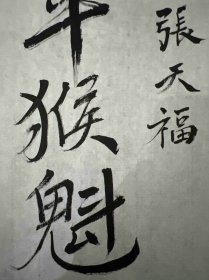 張天福
猴魁